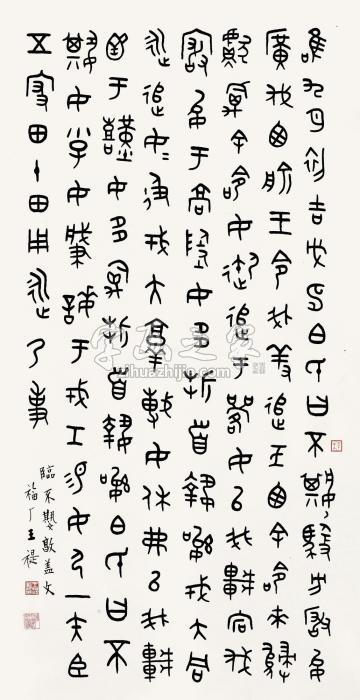 唯九月初吉戊申白氏曰不𡢁馭方玁允
廣伐西俞王令我羞追于西余來歸
獻禽余命女御追于女以我車宕伐
玁允于高陶女多折首執訊戎大同
從追女女彶戎大敦搏女休弗以我車
圅于艱女多禽折首執訊白氏曰不
𡢁女小子女肇誨于戎工易女弓一矢束臣
五家田十田用從乃事
臨不𡢁敦蓋文
福厂王禔
字画之家
huazhijia.com